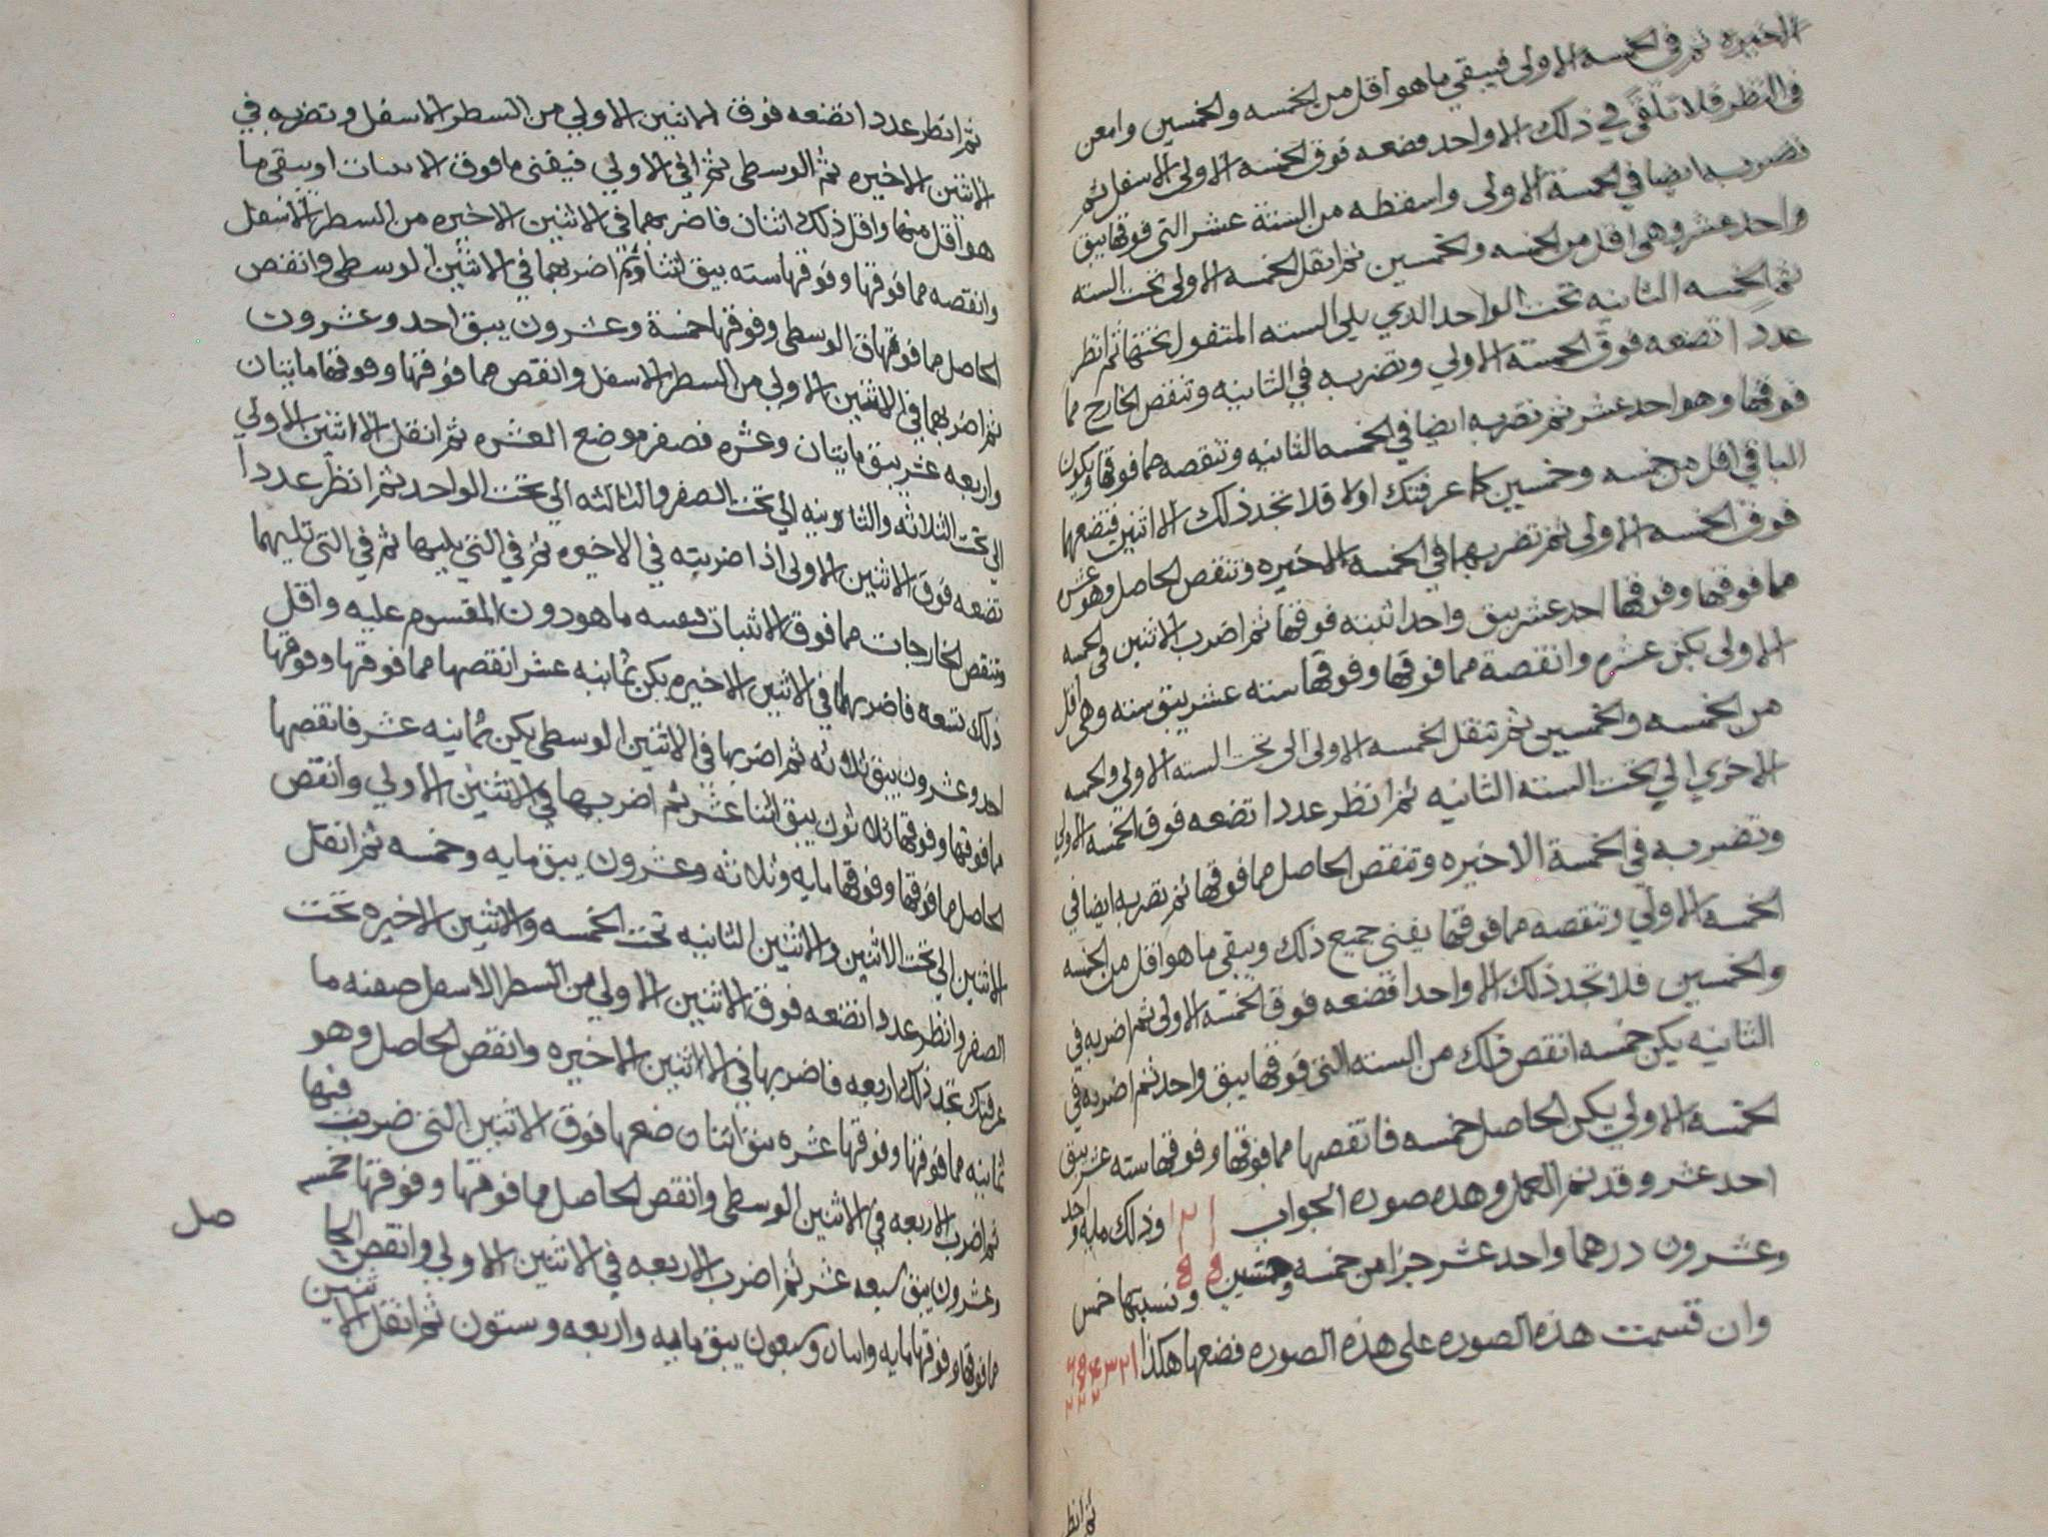 الاخيره ثم في الخمسه الاولى فيبقى ما هو اقل من الخمسه والخمسين وامعن
في النظر فلا تلقى في ذلك الا واحد فضعه فوق الخمسه الاولى الاسفل ثم
تضربه ايضا في الخمسة الاولى واسقطه من الستة عشر التي فوقها يبق
واحد عشر وهي اقل من الخمسه والخمسين ثم انقل الخمسه الاولى تحت السته
ثم الخمسه الثانيه تحت الواحد الذي يلي السته المنقول تحتها ثم انظر
عددا تضعه فوق الخمسته الاولي وتضربه في الثانيه وتنقص الخارج مما
فوقها وهو احد عشر ثم تضربه ايضا في الخمسه الثانيه وتنقصه مما فوقها ويكون
الباقي اقل من خمسه وخمسين كما عرفتك اولا فلا تجد ذلك الا اثنين فتضعهما
فوق الخمسه الاولى ثم تضربهما في الخمسه الاخيره وتنقص الحاصل وهو عشر
مما فوقها وفوقها احد عشر يبق واحد اثبته فوقها ثم اضرب الاثنين في الخمسه
الاولى يكن عشره وانقصه مما فوقها وفوقها سته عشر يبق سته وهي اقل
من الخمسه والخمسين ثم تنقل الخمسه الاولى الى تحت السته الاولى والخمسه
الاخرى الي تحت السته الثانيه ثم انظر عددا تضعه فوق الخمسه الاولي
وتضربه في الخمسة الاخيره وتنقص الحاصل مما فوقها ثم تضربه ايضا في
الخمسه الاولي وتنقصه مما فوقها يفنى جميع ذلك ويبقى ما هو اقل من الخمسه
والخمسين فلا تجد ذلك الا واحدا فضعه فوق الخمسه الاولى ثم اضربه في
الثانيه يكن خمسه انقص ذلك من السته التي فوقها يبق واحد ثم اضربه في
الخمسه الاولي يكن الحاصل خمسه فانقصها مما فوقها وفوقها سته عشر يبق
احد عشر وقد تم العمل وهذه صورة الجواب ١٢١ وذلك مايه واحد
وعشرون درهما واحد عشر جزا من خمسه وخمسين ٥٥ ونسبتها خمس
وان قسمت هذه الصوره على هذه الصوره فضعها هكذا
ثم انظر
ثم انظر عددا تضعه فوق الاثنين الاولي من السطر الاسفل وتضربه في
الاثنين الاخيره ثم الوسطى ثم في الاولي فيفنى ما فوق الاثنينات او يبقى ما
هو اقل منها واقل ذلك اثنان فاضربهما في الاثنين الاخيره من السطر الاسفل
وانقصه مما فوقها وفوقها سته يبق اثنا وثم اضربهما في الاثنين الوسطى وانقص
الحاصل مما فوقها في الوسطى وفوقها خمسة وعشرون يبق احد وعشرون
ثم اضربهما في الاثنين الاولي من السطر الاسفل وانقص مما فوقها وفوقها مايتان
واربعه عشر يبق مايتان وعشره فصفر موضع العشره ثم انقل الاثنين الاولي
الى تحت الثلاثه والثانيه الي تحت الصفر والثالثه الي تحت الواحد ثم انظر عددا
تضعه فوق الاثنين الاولى اذا ضربته في الاخيره ثم في التي يليها ثم في التي تليهما
وتنقص الخارجات مما فوق الاثنان فيفنيه ما هو دون المقسوم عليه واقل
ذلك تسعه فاضربهما في الاثنين الاخيره يكن ثمانيه عشر انقصها مما فوقها وفوقها
احد وعشرون يبق ثلاثه ثم اضربها في الاثنين الوسطى يكن ثمانيه عشر فانقصها
مما فوقها وفوقها ثلاثون يبق اثنا عشر ثم اضربها في الاثنين الاولي وانقص
الحاصل مما فوقها وفوقها مايه وثلاثه وعشرون يبق مايه وخمسه ثم انقل
الاثنين الي تحت الاثنين والاثنين الثانيه تحت الخمسه والاثنين الاخيره تحت
الصفر وانظر عددا تضعه فوق الاثنين الاولي من السطر الاسفل صفته ما
عرفتك تجد ذلك اربعه فاضربها في الاثنين الاخيره وانقص الحاصل وهو
ثمانيه مما فوقها وفوقها عشره يبق اثنان ضعها فوق الاثنين التي ضربت فيها
ثم اضرب الاربعه في الاثنين الوسطى وانقص الحاصل مما فوقها وفوقها خمسه
وعشرون يبق سبعه عشر ثم اضرب الاربعه في الاثنين الاولي وانقص الحا
صل
مما فوقها وفوقها مايه واثنان وسبعون يبق مايه واربعه وستون ثم انقل الاثنين